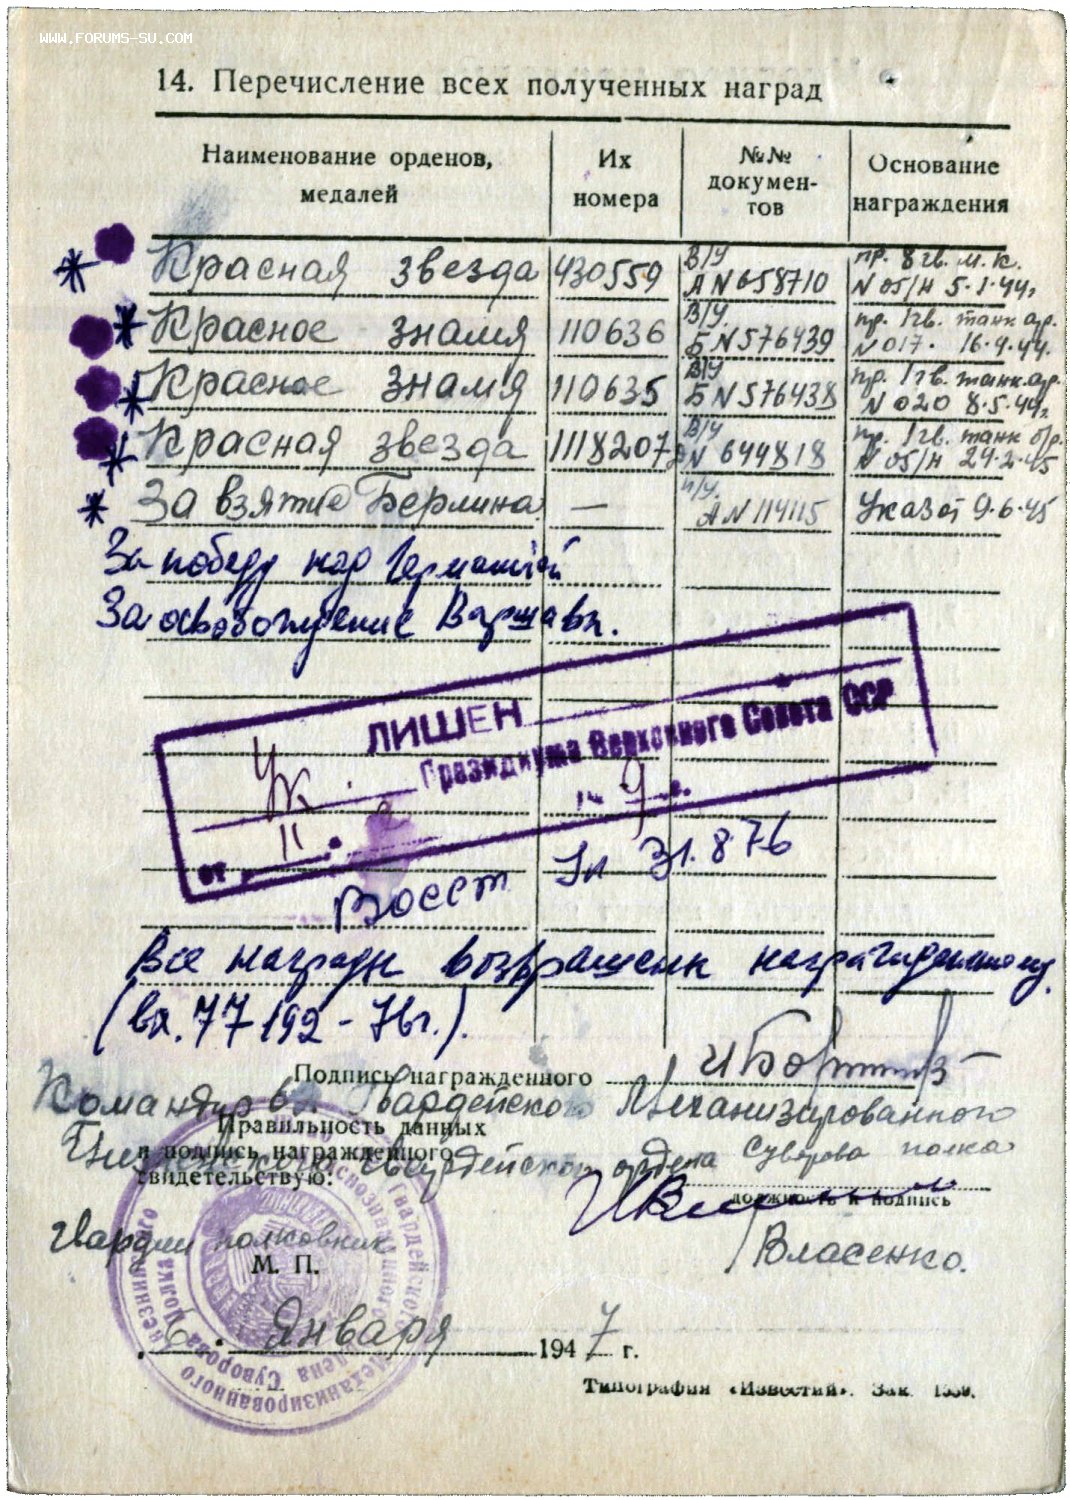 WWW.FORUMS-SU.COM
14. Перечисление всех полученных наград
Наименование орденов, медалей
Их номера
№№ докумен-тов
Основание награждения
Красная звезда 430559 В/У А N 658710 пр. 8 гв. м. к. N 05/н 5.1.44г
Красное знамя 110636 В/У. Б N 576439 пр. 1гв. танк ар. N 017. 16.4.44.
Красное знамя 110635 В/У Б N 576438 пр. 1гв. танк. ар. N 020 8.5.44г
Красная звезда 1118207 В/У N 644818 пр. 1гв. танк бр. N 05/н 24.2.45
За взятие Берлина — А N 114115 Указ от 9.6.45
За победу над Германией
За освобождение Варшавы.
ЛИШЕН
Ук.
Президиума Верховного Совета ССР
от 11. 9
Восст Ук 31.8.76
Все награды возвращены награжденному.
(вх. 77192 - 76г.).
Подпись награжденного
Командир 6 Гвардейского Механизированного
Правильность данных
и подпись награжденного
свидетельствую:
гвардейского ордена Суворова полка
должность и подпись
Гвардии полковник
Власенко.
М. П.
6. Января 1947 г.
Типография «Известий». Зак.